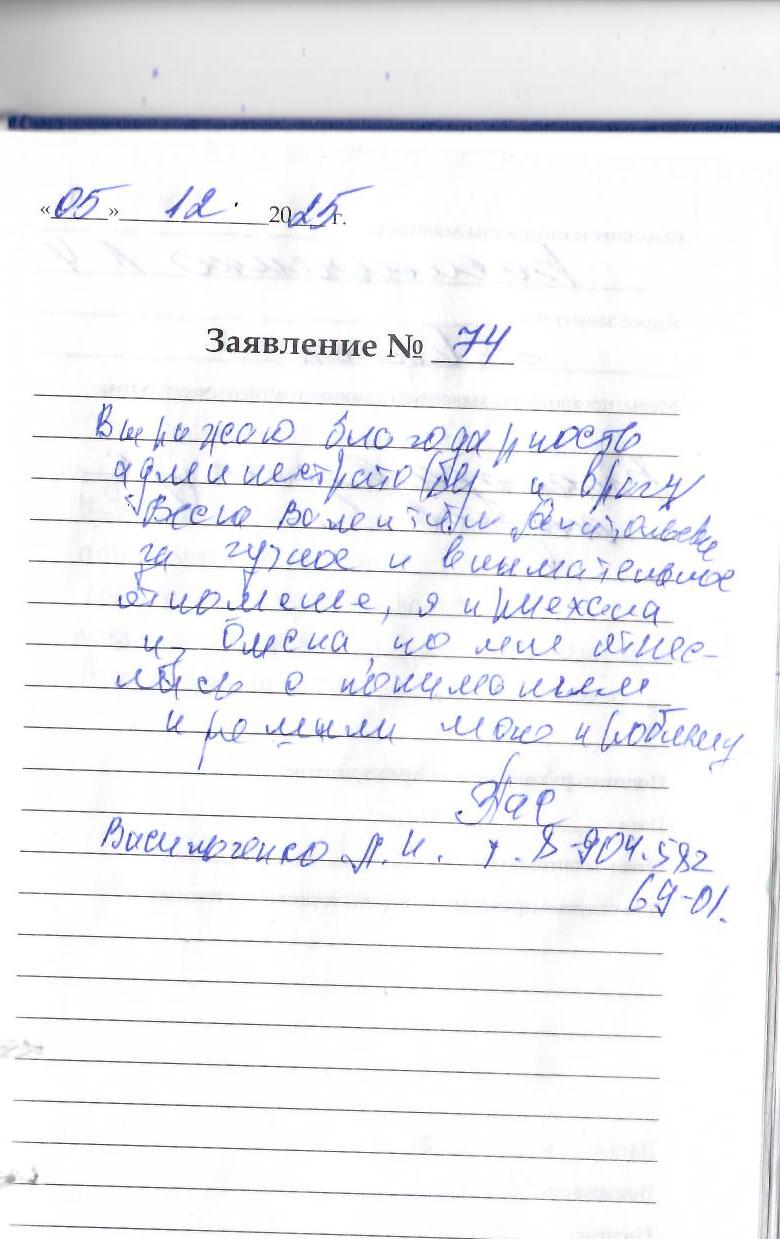 «05» 12. 2025г.
Заявление № 74
Выражаю благодарность
и врачу
Весна Валентине
за чуткое и внимательное
отношение, я приехала
из Омска но мне отнес-
лись с пониманием
и решили мою проблему
Василюченко Л. И. т. 8-904.582
69-01.